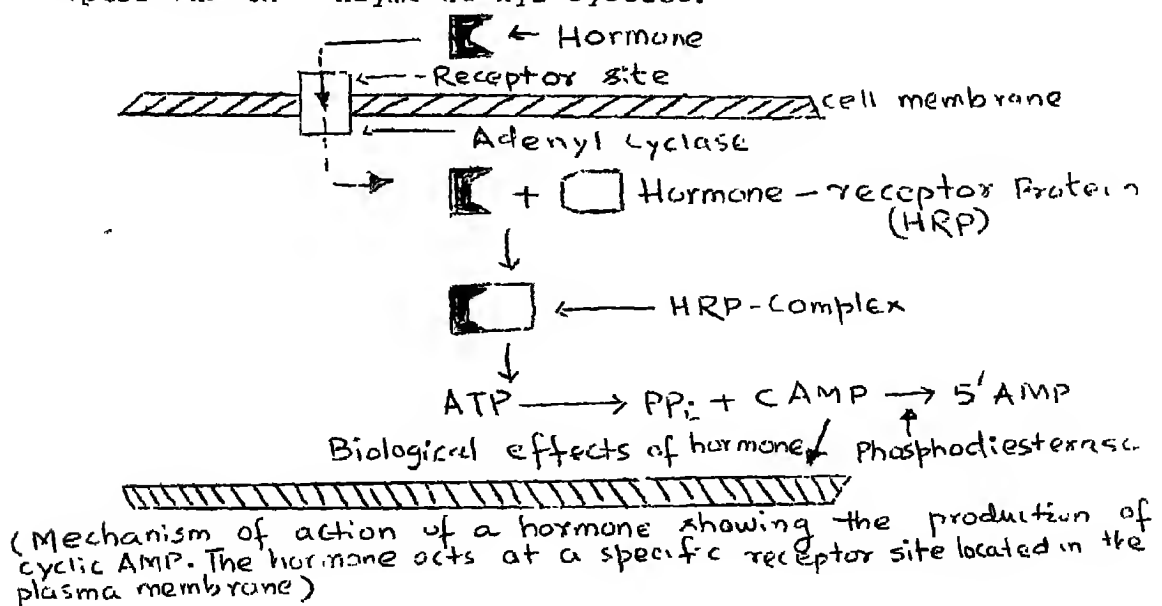 ← Hormone
←-- Receptor site
cell membrane
Adenyl cyclase
+ Hormone - receptor Protein
(HRP)
← HRP-Complex
ATP → PPi + CAMP → 5' AMP
Biological effects of hormone Phosphodiesterase
(Mechanism of action of a hormone showing the production of
cyclic AMP. The hormone acts at a specific receptor site located in the
plasma membrane)